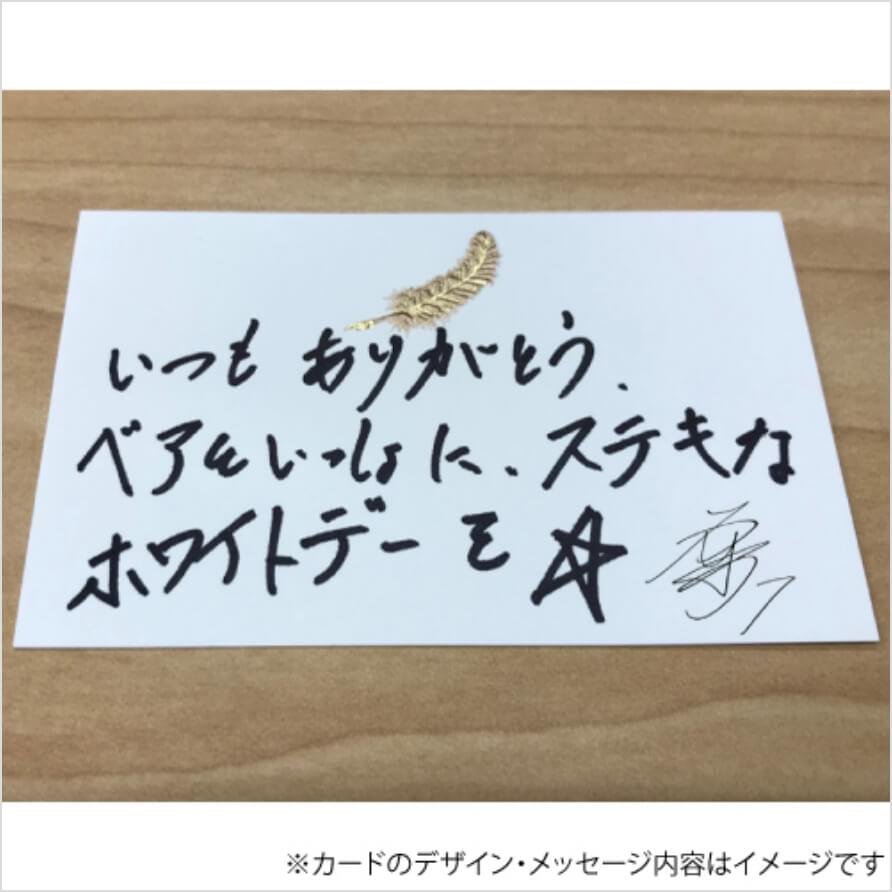 いつも ありがとう、
ベアといっしょに、ステキな
ホワイトデー を ☆
※カードのデザイン・メッセージ内容はイメージです